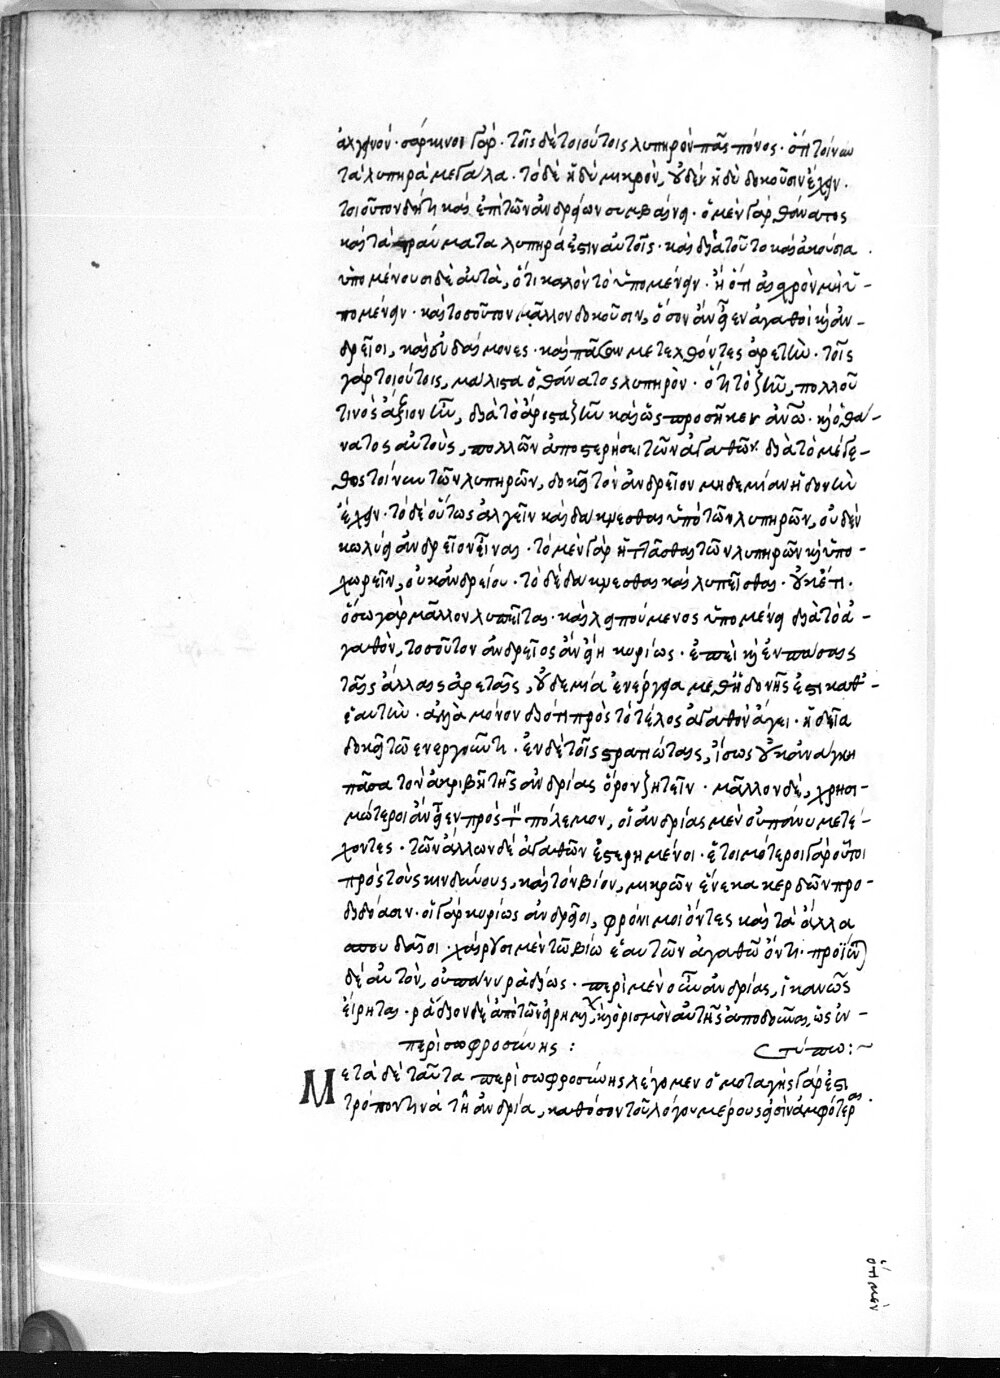 ἀλγεινόν· σάρκινοι γάρ· τοῖς δὲ τοιούτοις λυπηρὸν πᾶς πόνος· ὅτι τοίνυν
τὰ λυπηρὰ μεγάλα· τὸ δὲ ἡδὺ μικρὸν, οὐδὲν ἡδὺ δοκοῦσιν ἔχειν·
τοιοῦτον δή τι καὶ ἐπὶ τῶν ἀνδρείων συμβαίνει· ὁ μὲν γὰρ θάνατος
καὶ τὰ τραύματα λυπηρά ἐστιν αὐτοῖς· καὶ διὰ τοῦτο καὶ ἀκούσια·
ὑπομένουσι δὲ αὐτὰ, ὅτι καλὸν τὸ ὑπομένειν· ἢ ὅτι αἰσχρὸν μὴ ὑ-
πομένειν· καὶ τοσοῦτον μᾶλλον δοκοῦσιν, ὅσον ἂν εἶεν ἀγαθοὶ καὶ ἀν-
δρεῖοι, καὶ εὐδαίμονες· καὶ πασῶν μετεχθόντες ἀρετῶν· τοῖς
γὰρ τοιούτοις, μάλιστα ὁ θάνατος λυπηρὸν· ὅτι τὸ ζῆν, πολλοῦ
τινὸς ἄξιον ἦν, διὰ τὸ ἄριστα ζῆν καὶ ὡς προσῆκεν ἀνθρώπῳ· καὶ ὁ θά-
νατος αὐτοὺς, πολλῶν ἀποστερήσει τῶν ἀγαθῶν· διὰ τὸ μέγε-
θος τοίνυν τῶν λυπηρῶν, δοκεῖ τὸν ἀνδρεῖον μηδεμίαν ἡδονὴν
ἔχειν· τὸ δὲ οὕτως ἀλγεῖν καὶ δάκνεσθαι ὑπὸ τῶν λυπηρῶν, οὐδὲν
κωλύει ἀνδρεῖον εἶναι· τὸ μὲν γὰρ ἡττᾶσθαι τῶν λυπηρῶν καὶ ὑπο-
χωρεῖν, οὐκ ἀνδρείου· τὸ δὲ δάκνεσθαι καὶ λυπεῖσθαι· οὐκέτι·
ὅσῳ γὰρ μᾶλλον λυπεῖται· καὶ λυπούμενος ὑπομένει διὰ τὸ ἀ-
γαθὸν, τοσοῦτον ἀνδρεῖος ἂν εἴη κυρίως· ἐπεὶ καὶ ἐν πάσαις
ταῖς ἄλλαις ἀρεταῖς, οὐδεμία ἐνέργεια μεθ' ἡδονῆς ἐστι καθ' -
ἑαυτὴν· ἀλλὰ μόνον διότι πρὸς τὸ τέλος ἀγαθὸν ἄγει· ἡδεῖα
δοκεῖ τῷ ἐνεργοῦντι· ἐν δὲ τοῖς στρατιώταις, ἴσως οὐκ ἀνάγκη
πᾶσα τὸν ἀκριβῆ τῆς ἀνδρίας ὅρον ζητεῖν· μᾶλλον δὲ, χρησι-
μώτεροι ἂν εἶεν πρὸς τὸν πόλεμον, οἱ ἀνδρίας μὲν οὐ πάνυ μετέ-
χοντες· τῶν ἄλλων δὲ ἀγαθῶν ἐστερημένοι· ἑτοιμότεροι γὰρ οὗτοι
πρὸς τοὺς κινδύνους, καὶ τὸν βίον, μικρῶν ἕνεκα κερδῶν προ-
διδόασιν· οἱ γὰρ κυρίως ἀνδρεῖοι, φρόνιμοι ὄντες καὶ τὰ ἄλλα
σπουδαῖοι· χαίρουσι μὲν τῷ βίῳ ἑαυτῶν ἀγαθῷ ὄντι· προϊῶν
δὲ αὐτὸν, οὐ πάνυ ῥᾳδίως· περὶ μὲν οὖν ἀνδρίας, ἱκανῶς
εἴρηται· ῥᾴδιον δὲ ἀπὸ τῶν εἰρημένων, καὶ ὁρισμὸν αὐτῆς ἀποδοῦναι, ὡς ἐν -
τύπῳ:~
περὶ σωφροσύνης:
Μετὰ δὲ ταῦτα περὶ σωφροσύνης λέγομεν ὁμοταγὴς γάρ ἐστι
τρόπον τινὰ τῇ ἀνδρίᾳ, καθόσον τοῦ λόγου μέρους εἰσὶν ἀμφότεραι·
ὅτι μὲν